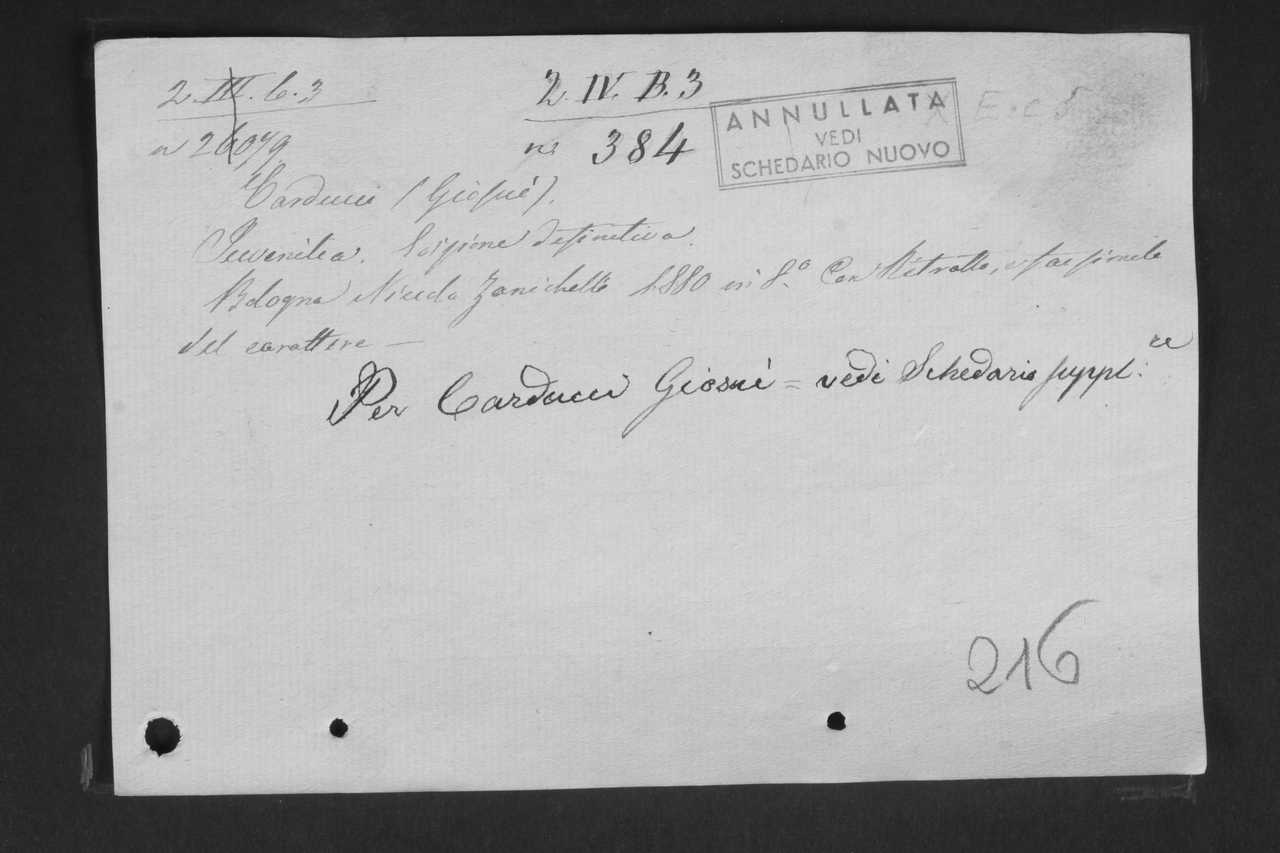 2.III.C.3
2.IV.B.3
n 26079
n. 384
ANNULLATA
VEDI
SCHEDARIO NUOVO
Carducci (Giosuè).
Juvenilia. Edizione definitiva.
Bologna Nicola Zanichelli 1880 in 8.º Con Ritratto, e facsimile
del carattere —
Per Carducci Giosuè = vedi Schedario suppl.re
216